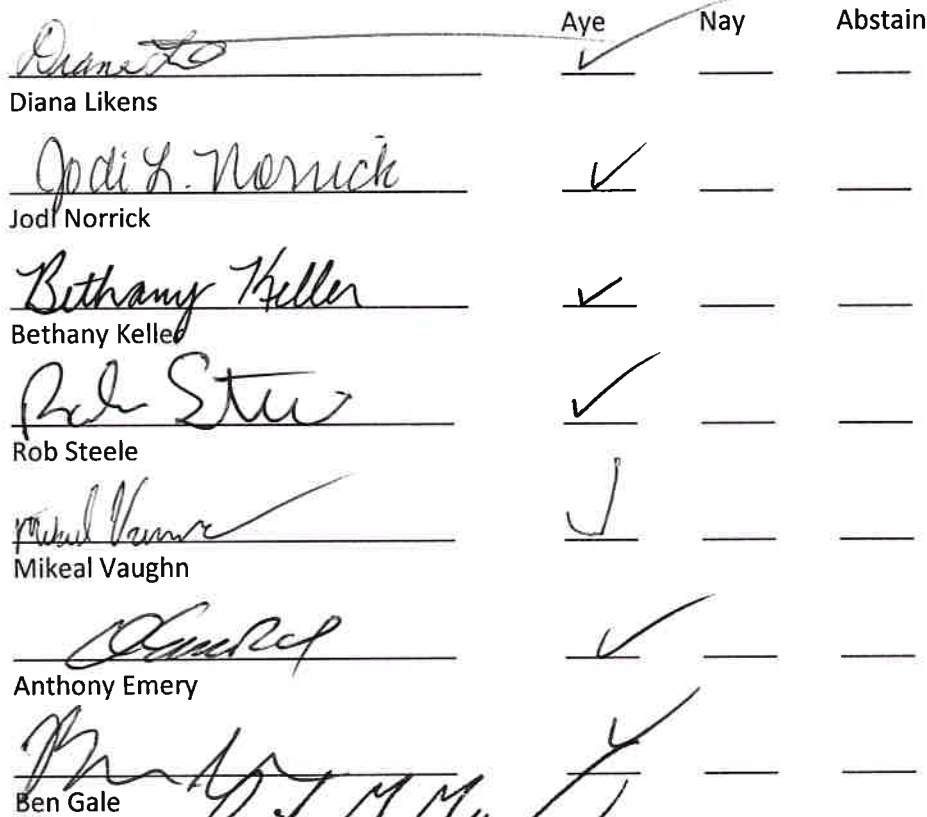 Aye Nay Abstain
Diana
Diana Likens
Jodi L. Norrick
Jodi Norrick
Bethany Keller
Bethany Keller
Rob
Rob Steele
Mikeal Vaughn
Anthony Emery
Ben Gale